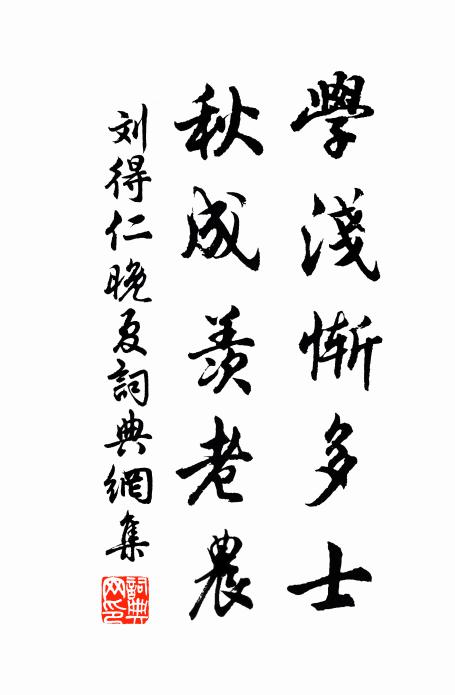 學淺慚多士
秋成羨老農
刘得仁晚夏詞典網集
詞典网印